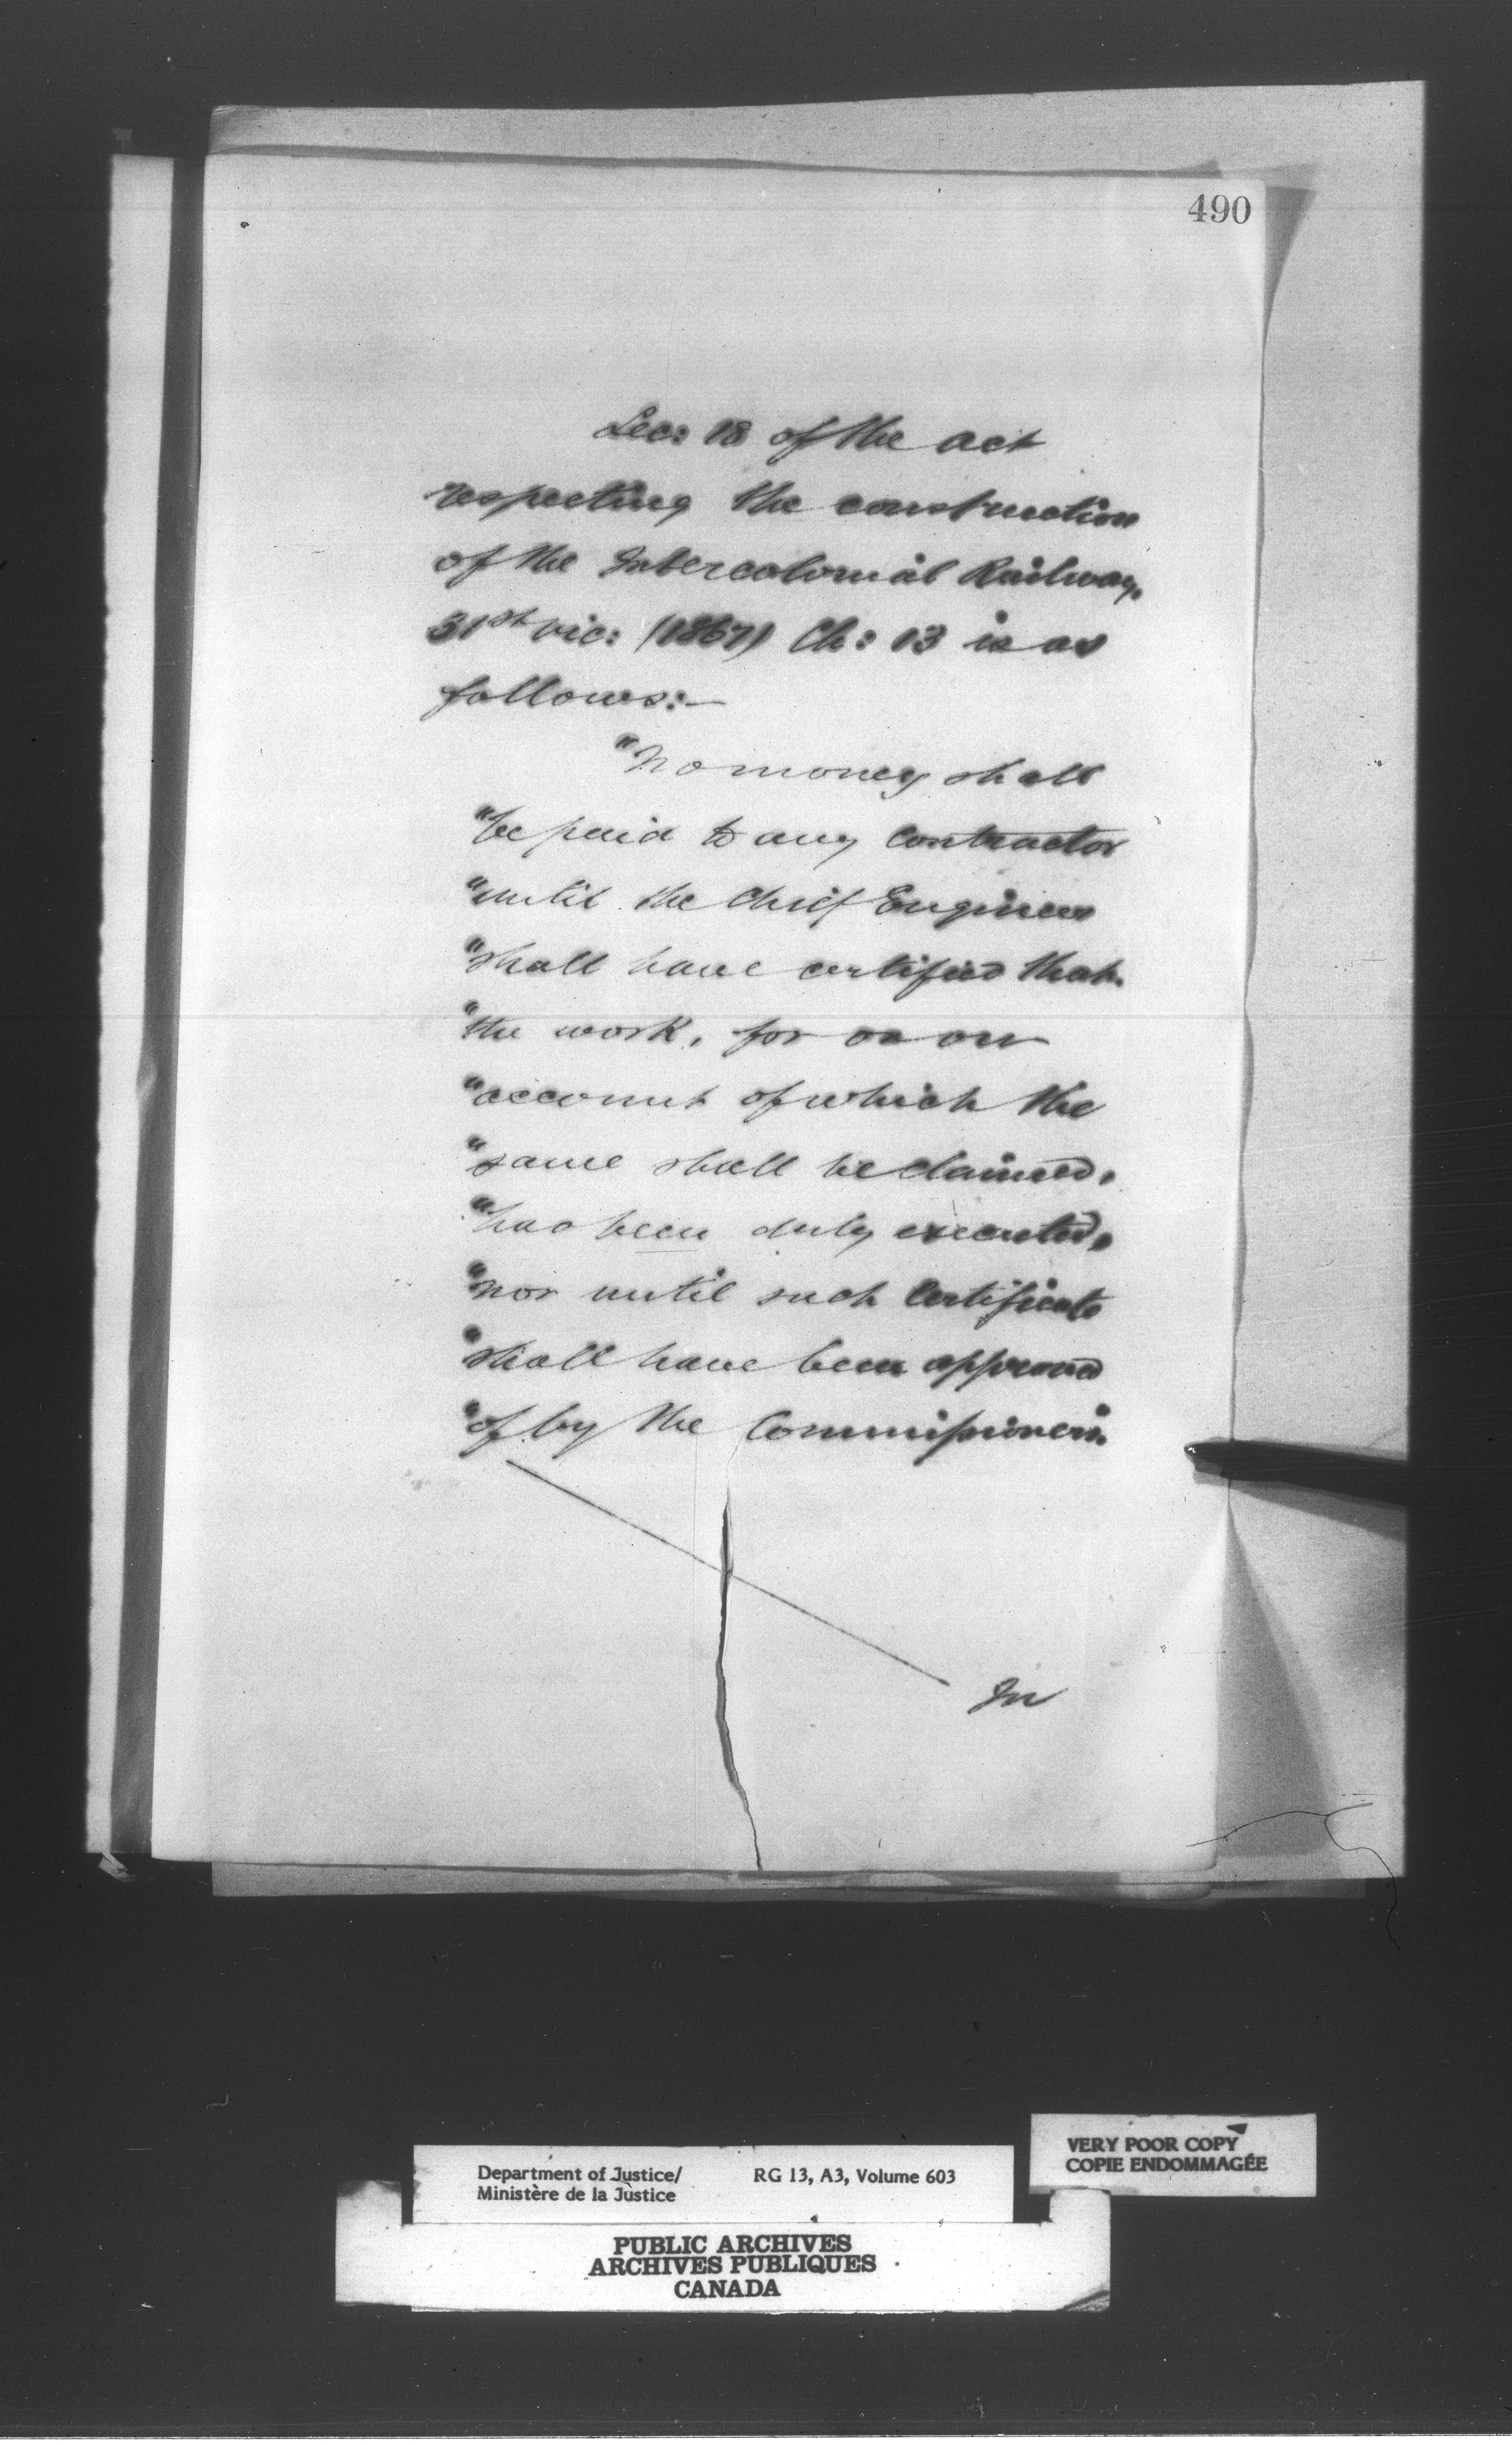 490
Sec: 18 of the act
respecting the construction
of the Intercolonial Railway,
31st Vic: (1867) Ch: 13 is as
follows:—
"No money shall
"be paid to any Contractor
"until the Chief Engineer
"shall have certified that
"the work, for or on
"account of which the
"same shall be claimed,
"has been duly executed,
"nor until such Certificate
"shall have been approved
"of by the Commissioners."
In
VERY POOR COPY
COPIE ENDOMMAGÉE
Department of Justice/ RG 13, A3, Volume 603
Ministère de la Justice
PUBLIC ARCHIVES
ARCHIVES PUBLIQUES
CANADA